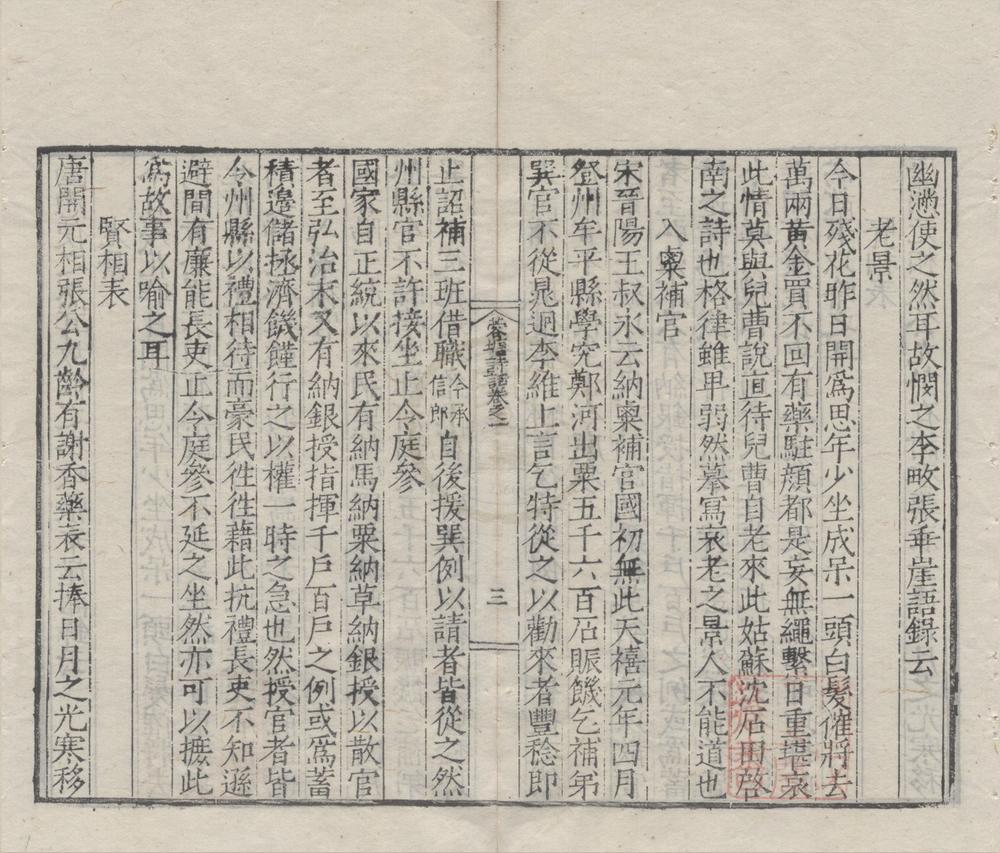 幽懣使之然耳故憫之李畋張乖崖語錄云
老景
今日殘花昨日開爲思年少坐成呆一頭白髮催將去
萬兩黃金買不回有藥駐顏都是妄無繩繫日重堪哀
此情莫與兒曹說直待兒曹自老來此姑蘇沈石田啓
南之詩也格律雖卑弱然摹寫衰老之景人不能道也
入粟補官
宋晉陽王叔永云納粟補官國初無此天禧元年四月
登州牟平縣學究鄭河出粟五千六百石賑饑乞補弟
巽官不從晁迥李維上言乞特從之以勸來者豐稔即
卷之一
三
止詔補三班借職今承信郎自後援巽例以請者皆從之然
州縣官不許接坐止令庭參
國家自正統以來民有納馬納粟納草納銀授以散官
者至弘治末又有納銀授指揮千戶百戶之例或爲蓄
積邊儲拯濟饑饉行之以權一時之急也然授官者皆
令州縣以禮相待而豪民徃徃藉此抗禮長吏不知遜
避間有廉能長吏止令庭參不延之坐然亦可以摭此
爲故事以喻之耳
賢相表
唐開元相張公九齡有謝香藥表云捧日月之光寒移